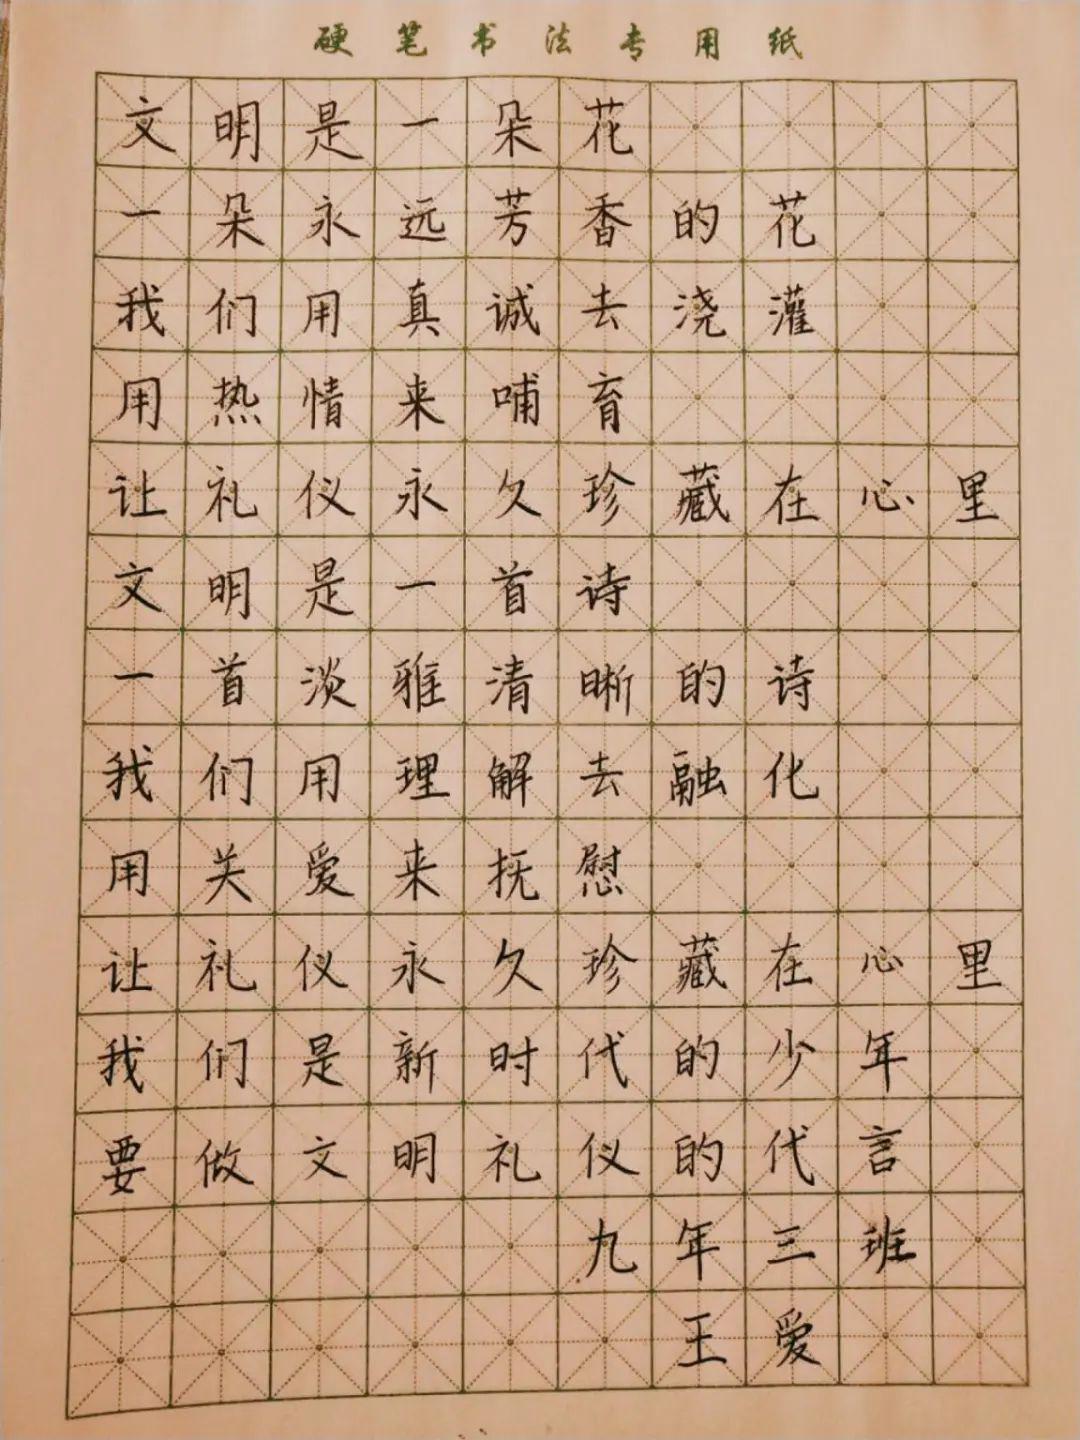 硬笔书法专用纸
文明是一朵花
一朵永远芳香的花
我们用真诚去浇灌
用热情来哺育
让礼仪永久珍藏在心里
文明是一首诗
一首淡雅清晰的诗
我们用理解去融化
用关爱来抚慰
让礼仪永久珍藏在心里
我们是新时代的少年
要做文明礼仪的代言
九年三班
王爱